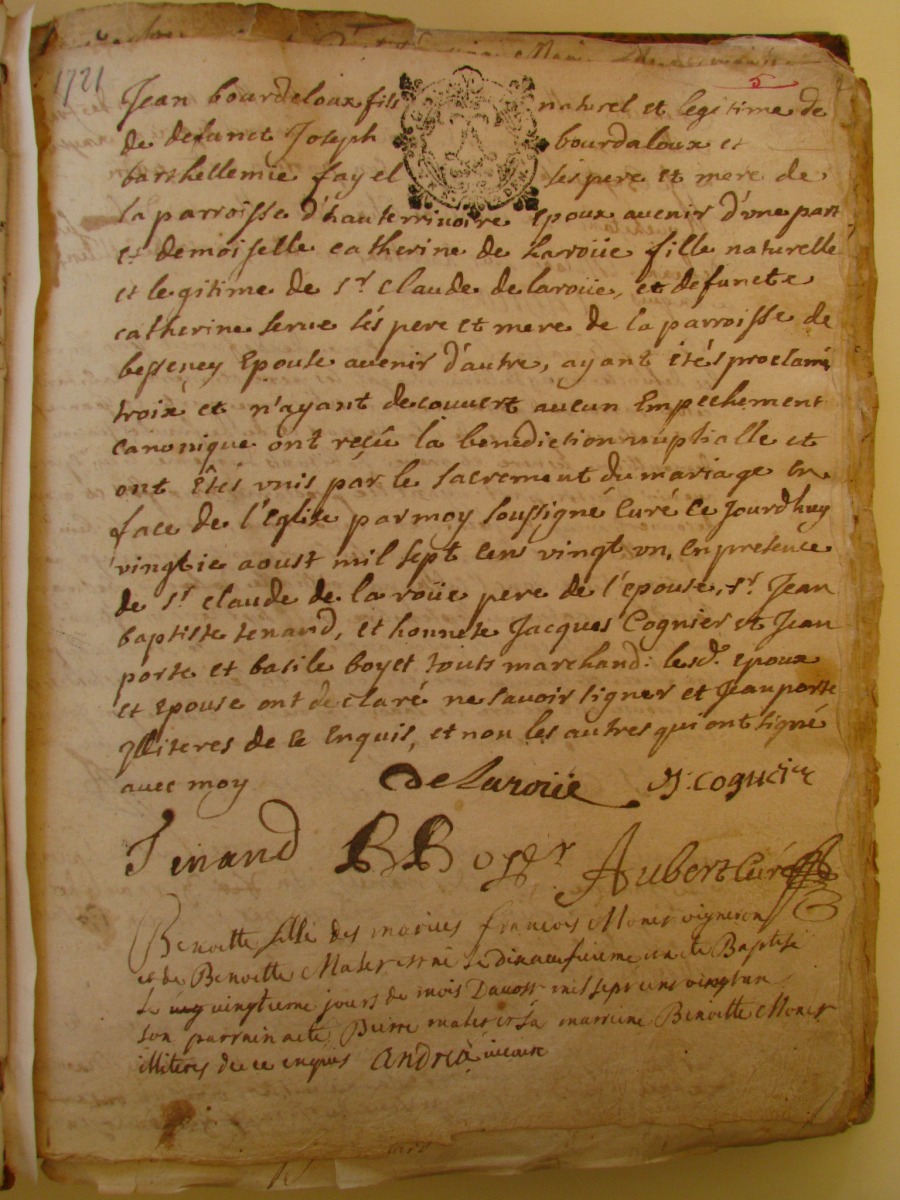 1721
5
Jean bourdeloux fils naturel et legitime de
de defunct Joseph bourdaloux et
barthellemie fayel ses pere et mere de
la parroisse d'hauterrivoire Epoux avenir d'vne part
et demoiselle catherine de Laroüe fille naturelle
et legitime de Sr. Claude de laroüe, et defuncte
catherine serve sés pere et mere de la parroisse de
besseney Epouse avenir d'autre, ayant étés proclamé
troix et n'ayant decouvert aucun Empechement
canonique ont reçeû la benediction nuptialle et
ont êtés vnis par le sacrement du mariage en
face de l'Eglise par moy soussigné Curé Ce Jourdhuy
vingtie aoust mil sept cens vingt vn, En presence
de Sr. claude de la roüe pere de l'epouse, Sr. Jean
baptiste tenand, et honnete Jacques Cognier et Jean
porte et basile boyet touts marchand: lesd. Epoux
et Epouse ont declaré ne savoir signer et Jean porte
Jlliteres de ce Enquis, et non les autres qui ont signé
avec moy DeLaroüe J. cognier
Tenand BB Aubert Curé
Benoitte fille des mariés françois Monet vigneron
et de Benoitte né le dineufieme Baptisé
le vingtieme jours de mois Daoust mil sept cens vingt un
son parrain a eté Pierre et sa marraine Benoitte Monet
illiteres de ce enquis Andréa vicaire